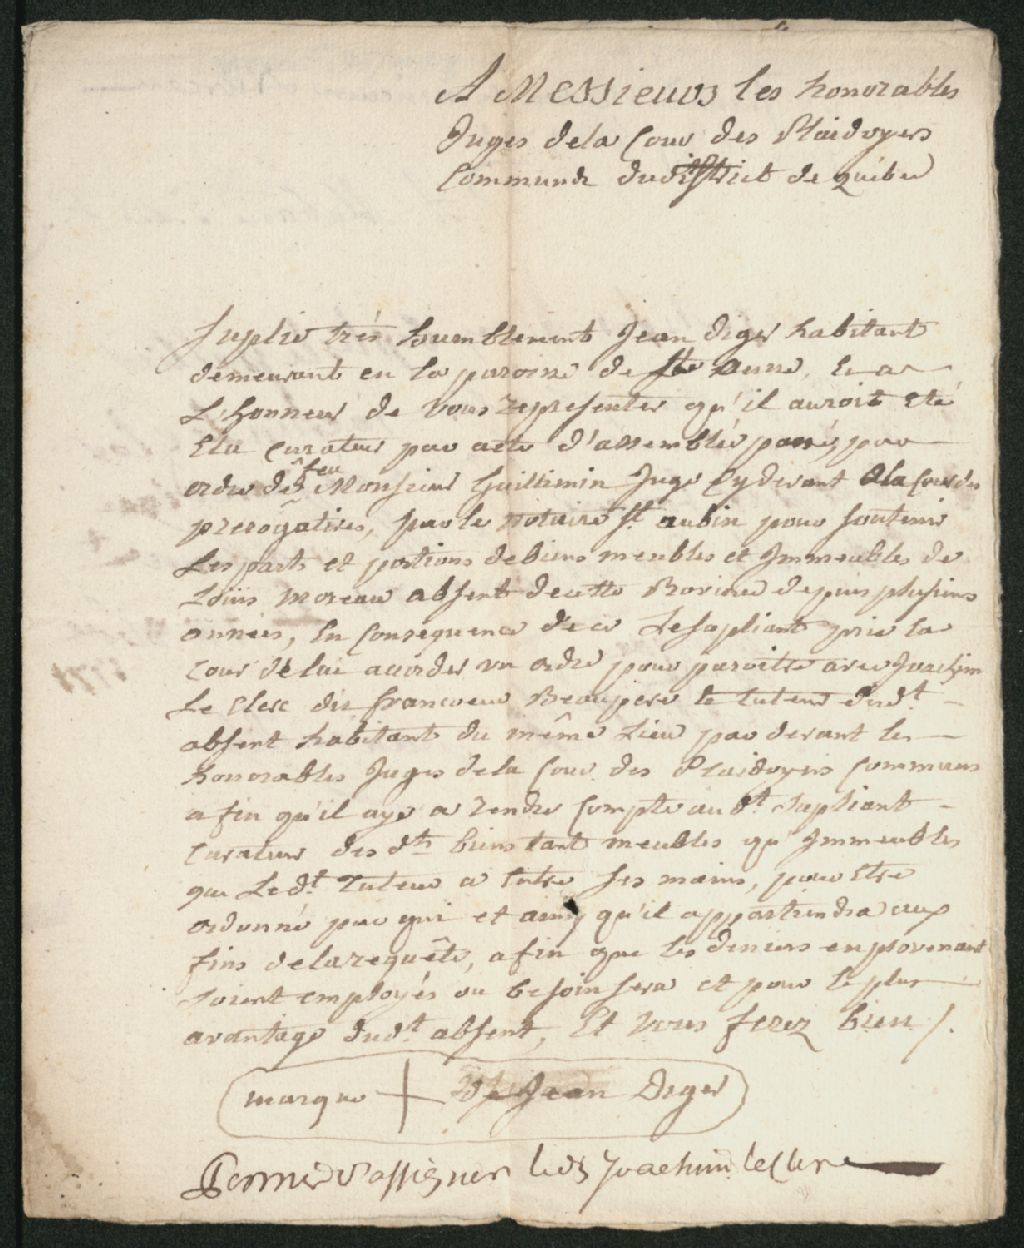 A Messieurs les honorables
Juges dela Cour des Plaidoyers
Commune dudistrict de Québec
Suplie trés houmblement Jean Diger habitant
demeurant en la paroisse de Ste Anne, Et a
L'honneur de vous representer qu'il auroit eté
Elu Curateur par acte d'assemblée passé, par
ordre de feu Monsieur Guillimin Juge Cy devant dela Cour des
prerogatives, par le notaire St aubin pour soutenir
Les parts et portions debiens meubles et Immeubles de
Loüis Moreau absent decette Province depuis plusieurs
années, En Consequence dece Lesupliant prie la
Cour de lui acorder un ordre pour paroître avec Joachim
Le Clerc dit francoeur Beaupere et tuteur dudt
absent habitant du même Lieu par devant les
honorables Juges dela Cour des Plaidoyers Communs
afin qu'il aye a rendre Compte audt Supliant
Curateur desdts biens tant meubles qu'Immeubles
que Ledt Tuteur a Entre ses mains, pour Etre
ordonné par qui et ainsy qu'il appartiendra aux
fins delarequête, afin que les deniers enprovenant
soient employés ou besoin sera et pour le plus
avantage dudt absent, Et vous ferez bien /.
marque + de Jean Diger
Permis d'assigner ledt Joachim leClerc